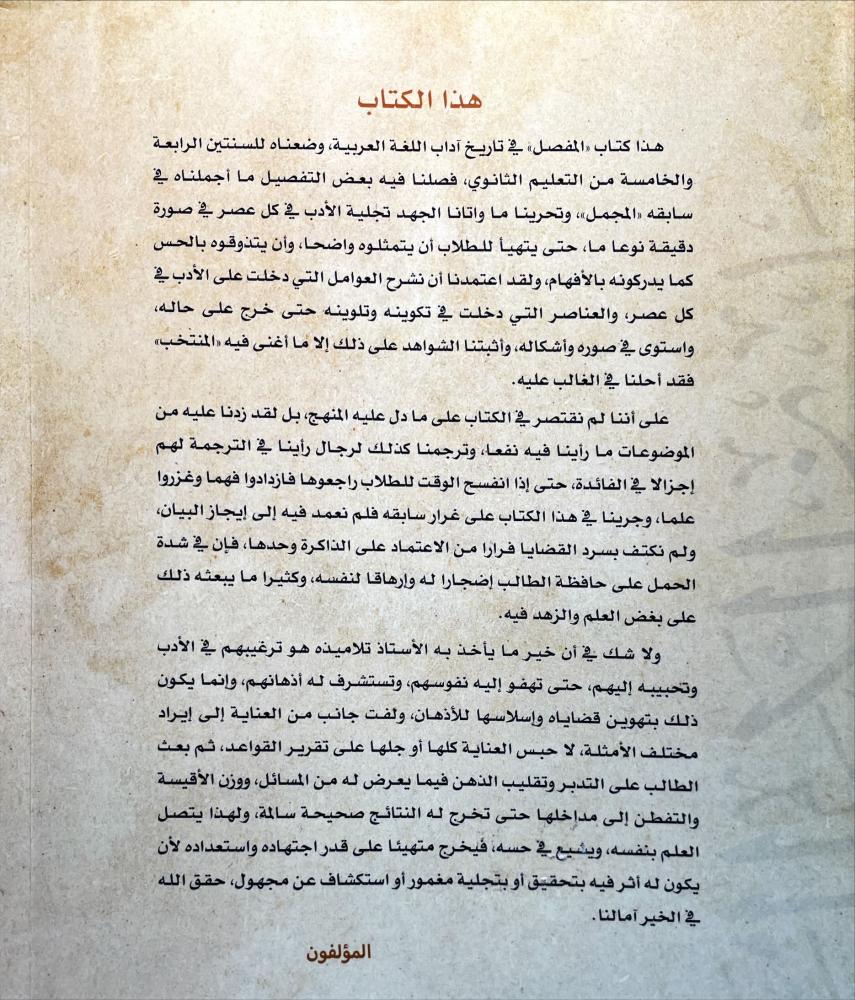 هذا الكتاب
هذا كتاب «المفصل» في تاريخ آداب اللغة العربية، وضعناه للسنتين الرابعة
والخامسة من التعليم الثانوي، فصلنا فيه بعض التفصيل ما أجملناه في
سابقه «المجمل»، وتحرينا ما واتانا الجهد تجلية الأدب في كل عصر في صورة
دقيقة نوعا ما، حتى يتهيأ للطلاب أن يتمثلوه واضحا، وأن يتذوقوه بالحس
كما يدركونه بالأفهام، ولقد اعتمدنا أن نشرح العوامل التي دخلت على الأدب في
كل عصر، والعناصر التي دخلت في تكوينه وتلوينه حتى خرج على حاله،
واستوى في صوره وأشكاله، وأثبتنا الشواهد على ذلك إلا ما أغنى فيه «المنتخب»
فقد أحلنا في الغالب عليه.
على أننا لم نقتصر في الكتاب على ما دل عليه المنهج، بل لقد زدنا عليه من
الموضوعات ما رأينا فيه نفعا، وترجمنا كذلك لرجال رأينا في الترجمة لهم
إجزالا في الفائدة، حتى إذا انفسح الوقت للطلاب راجعوها فازدادوا فهما وغزروا
علما، وجرينا في هذا الكتاب على غرار سابقه فلم نعمد فيه إلى إيجاز البيان،
ولم نكتف بسرد القضايا فرارا من الاعتماد على الذاكرة وحدها، فإن في شدة
الحمل على حافظة الطالب إضجارا له وإرهاقا لنفسه، وكثيرا ما يبعثه ذلك
على بغض العلم والزهد فيه.
ولا شك في أن خير ما يأخذ به الأستاذ تلاميذه هو ترغيبهم في الأدب
وتحبيبه إليهم، حتى تهفو إليه نفوسهم، وتستشرف له أذهانهم، وإنما يكون
ذلك بتهوين قضاياه وإسلاسها للأذهان، ولفت جانب من العناية إلى إيراد
مختلف الأمثلة، لا حبس العناية كلها أو جلها على تقرير القواعد، ثم بعث
الطالب على التدبر وتقليب الذهن فيما يعرض له من المسائل، ووزن الأقيسة
والتفطن إلى مداخلها حتى تخرج له النتائج صحيحة سالمة، ولهذا يتصل
العلم بنفسه، ويشيع في حسه، فيخرج متهيئا على قدر اجتهاده واستعداده لأن
يكون له أثر فيه بتحقيق أو بتجلية مغمور أو استكشاف عن مجهول، حقق الله
في الخير آمالنا.
المؤلفون